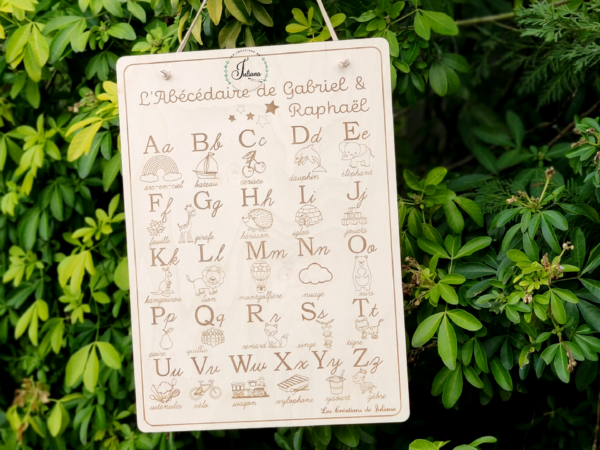 Juliana
L'Abécédaire de Gabriel &
Raphaël
Aa Bb Cc Dd Ee
arc-en-ciel bateau cerises dauphin éléphant
Ff Gg Hh Ii Jj
feuille girafe hérisson igloo jouets
Kk Ll Mm Nn Oo
kangourou lion montgolfière nuage ours
Pp Qq Rr Ss Tt
poire quilles renard singe tigre
Uu Vv Ww Xx Yy Zz
ustensiles vélo wagon xylophone yaourt zèbre
Les Créations de Juliana